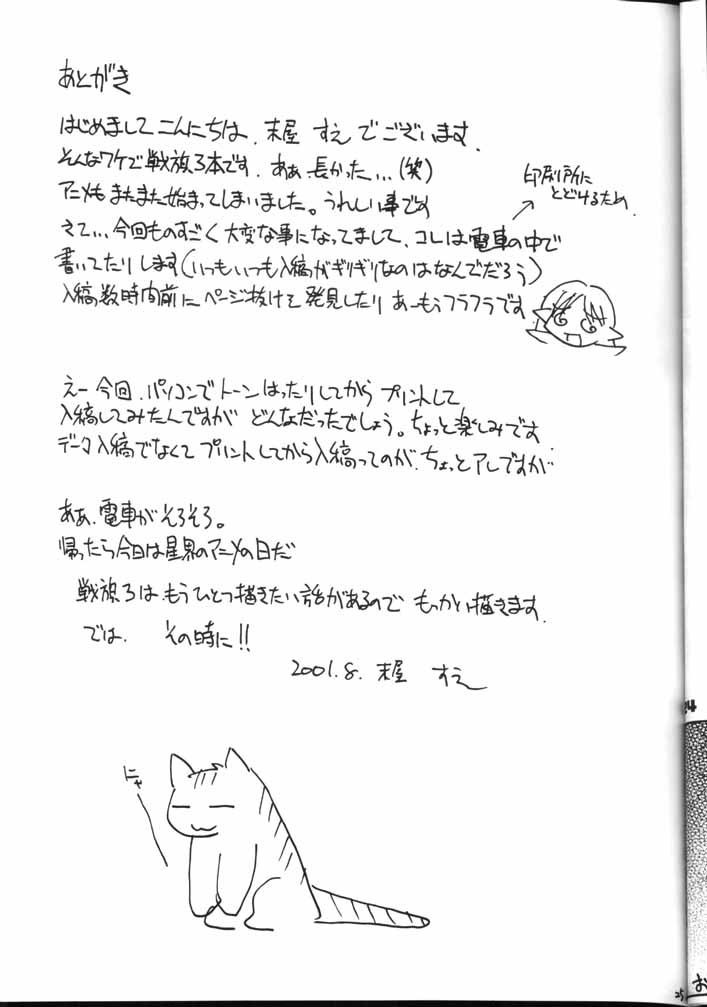 あとがき
はじめまして こんにちは、末屋 すえ でございます.
そんなワケで 戦旗3本です. あぁ 長かった…(笑)
アニメも またまた始まってしまいました。うれしい事です
さて…今回ものすごく 大変な事になってまして、コレは 電車の中で
書いてたりします(いつもいつも入稿がギリギリなのはなんでだろう)
入稿数時間前に ページ抜けを 発見したり あーもうフラフラです
印刷所に
とどけるため.
えー 今回、パソコンで トーン はったりしてから プリントして
入稿してみたんですが どんなだったでしょう。ちょっと楽しみです
データ入稿でなくて プリントしてから入稿ってのが、ちょっとアレですが
ああ、電車が そろそろ。
帰ったら今日は星界のアニメの日だ
戦旗3は もうひとつ描きたい話があるので もっかい描きます.
では. その時に!!
2001.8. 末屋 すえ
にゃ
24
25